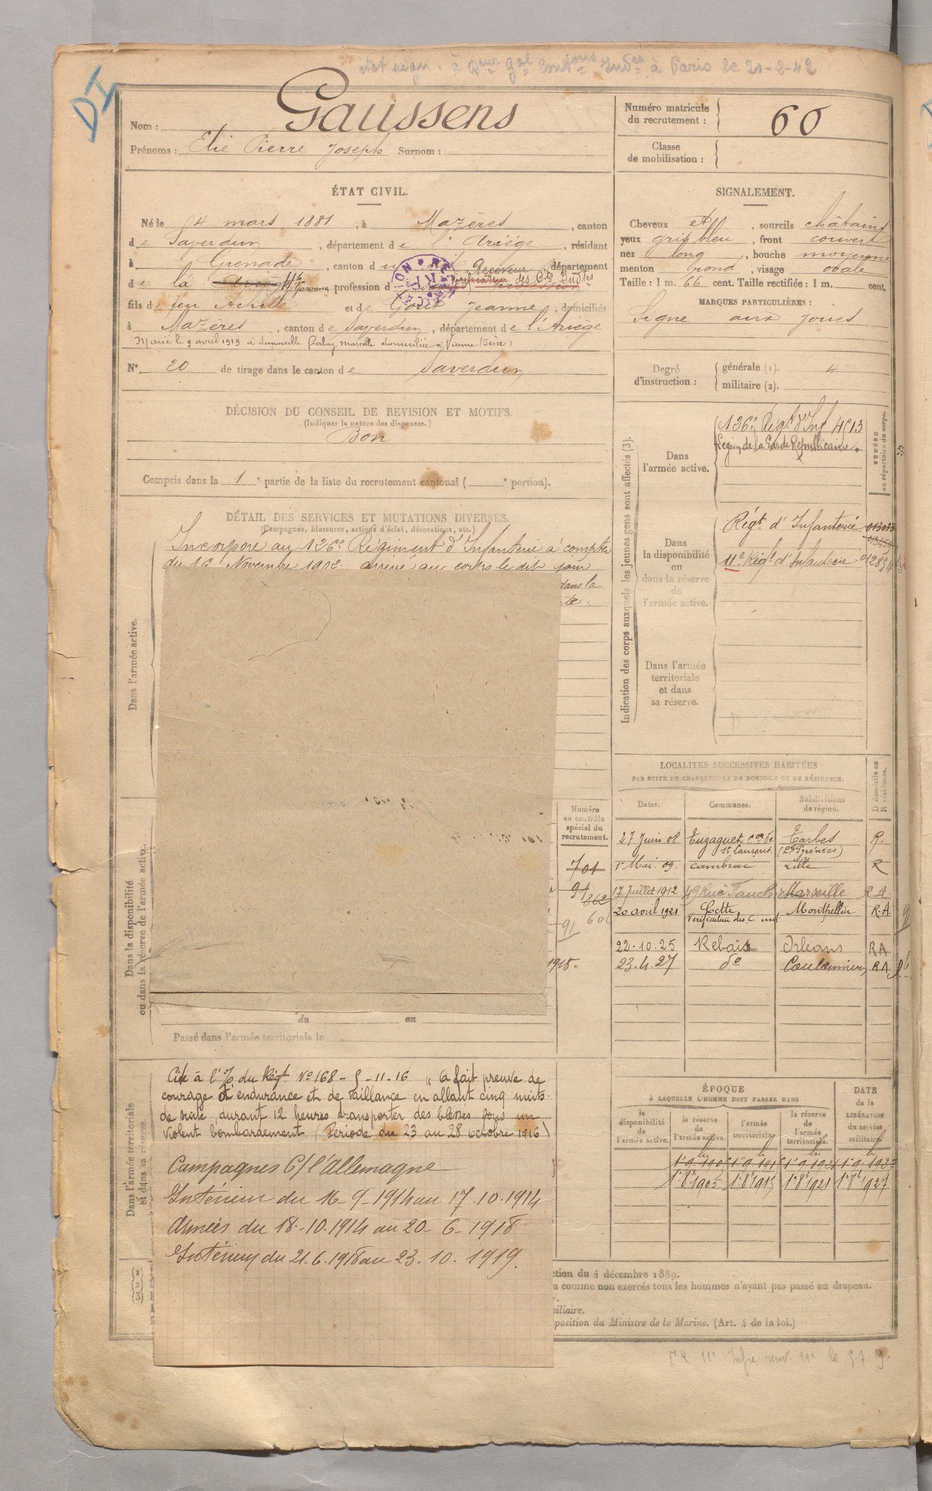 à Paris le 20-2-42
DI
Nom : Gaussens
Prénoms : Elie Pierre Joseph Surnom :
Numéro matricule du recrutement : 60
Classe de mobilisation :
ÉTAT CIVIL.
Né le 4 mars 1881, à Mazères, canton
de Saverdun, département de l'Ariège, résidant
à Grenade, canton d, département
de la profession d
fils de feu Achille et de Jeanne, domiciliés
à Mazères, canton de Saverdun, département de l'Ariège
Marié le 9 avril 1919 à demoiselle marcelle domiciliée à Vienne (Isère)
N° 20 de tirage dans le canton de Saverdun
SIGNALEMENT.
Cheveux et, sourcils châtains
yeux gris bleu, front couvert
nez long, bouche moyenne
menton rond, visage ovale
Taille : 1 m. 66 cent. Taille rectifiée : 1 m. cent.
MARQUES PARTICULIÈRES :
Signe aux joues
Degré d'instruction :
générale (1). 4
militaire (2).
DÉCISION DU CONSEIL DE REVISION ET MOTIFS.
(Indiquer la nature des dispenses.)
Bon
Compris dans la 1e partie de la liste du recrutement cantonal ( e portion).
DÉTAIL DES SERVICES ET MUTATIONS DIVERSES.
(Campagnes, blessures, actions d'éclat, décorations, etc.)
Incorporé au 126e Régiment d'Infanterie à compter
du 16 Novembre 1902 arrivé au corps le dit jour
dans la
Dans l'armée active.
Dans la disponibilité ou dans la réserve de l'armée active.
Dans l'armée territoriale et dans sa réserve.
Indication des corps auxquels les jeunes gens sont affectés (3).
NUMÉRO au répertoire du corps.
Dans l'armée active.
136e Régt d'Inf 4513
Légion de la Garde Républicaine
Dans la disponibilité ou dans la réserve de l'armée active.
Régt d'Infanterie
11e Régt d'Infanterie
Dans l'armée territoriale et dans sa réserve.
LOCALITÉS SUCCESSIVES HABITÉES
PAR SUITE DE CHANGEMENTS DE DOMICILE OU DE RÉSIDENCE.
Dates. Communes. Subdivisions de région. D domicile ou R résidence.
27 Juin 08 St Laurent Tarbes R.
(Htes Pyrénées)
1er Mai 09. Cambrai Lille R
17 Juillet 1912 49 Rue Marseille R.A.
20 août 1921 Cette Montpellier R.A
22-10-25 Rebais Orléans RA
23.4.27 do Coulommiers RA
Numéro au contrôle spécial du recrutement.
701
91
1918.
du au
Passé dans l'armée territoriale le
Cité à l'O/ du Régt N° 168 - 5-11-16 "a fait preuve de
courage et endurance et de vaillance en allant cinq nuits
de suite, durant 12 heures transporter des blessés sous un
violent bombardement (Période du 23 au 28 octobre 1916)
Campagnes C/ l'Allemagne
Intérieur du 16-9-1914 au 17.10.1914
Armées du 18-10.1914 au 20-6-1918
Intérieur du 21.6.1918 au 23.10.1919.
ÉPOQUE
À LAQUELLE L'HOMME DOIT PASSER DANS
la disponibilité de l'armée active.
la réserve de l'armée active.
l'armée territoriale.
la réserve de l'armée territoriale.
DATE de la LIBÉRATION du service militaire.
1r 8e 1905 1r 8e 1915 1r 8e 1921 1r 8e 1927
ction du 4 décembre 1889.
a comme non exercés tous les hommes n'ayant pas passé au drapeau.
xiliaire.
position du Ministre de la Marine. (Art. 4 de la loi.)